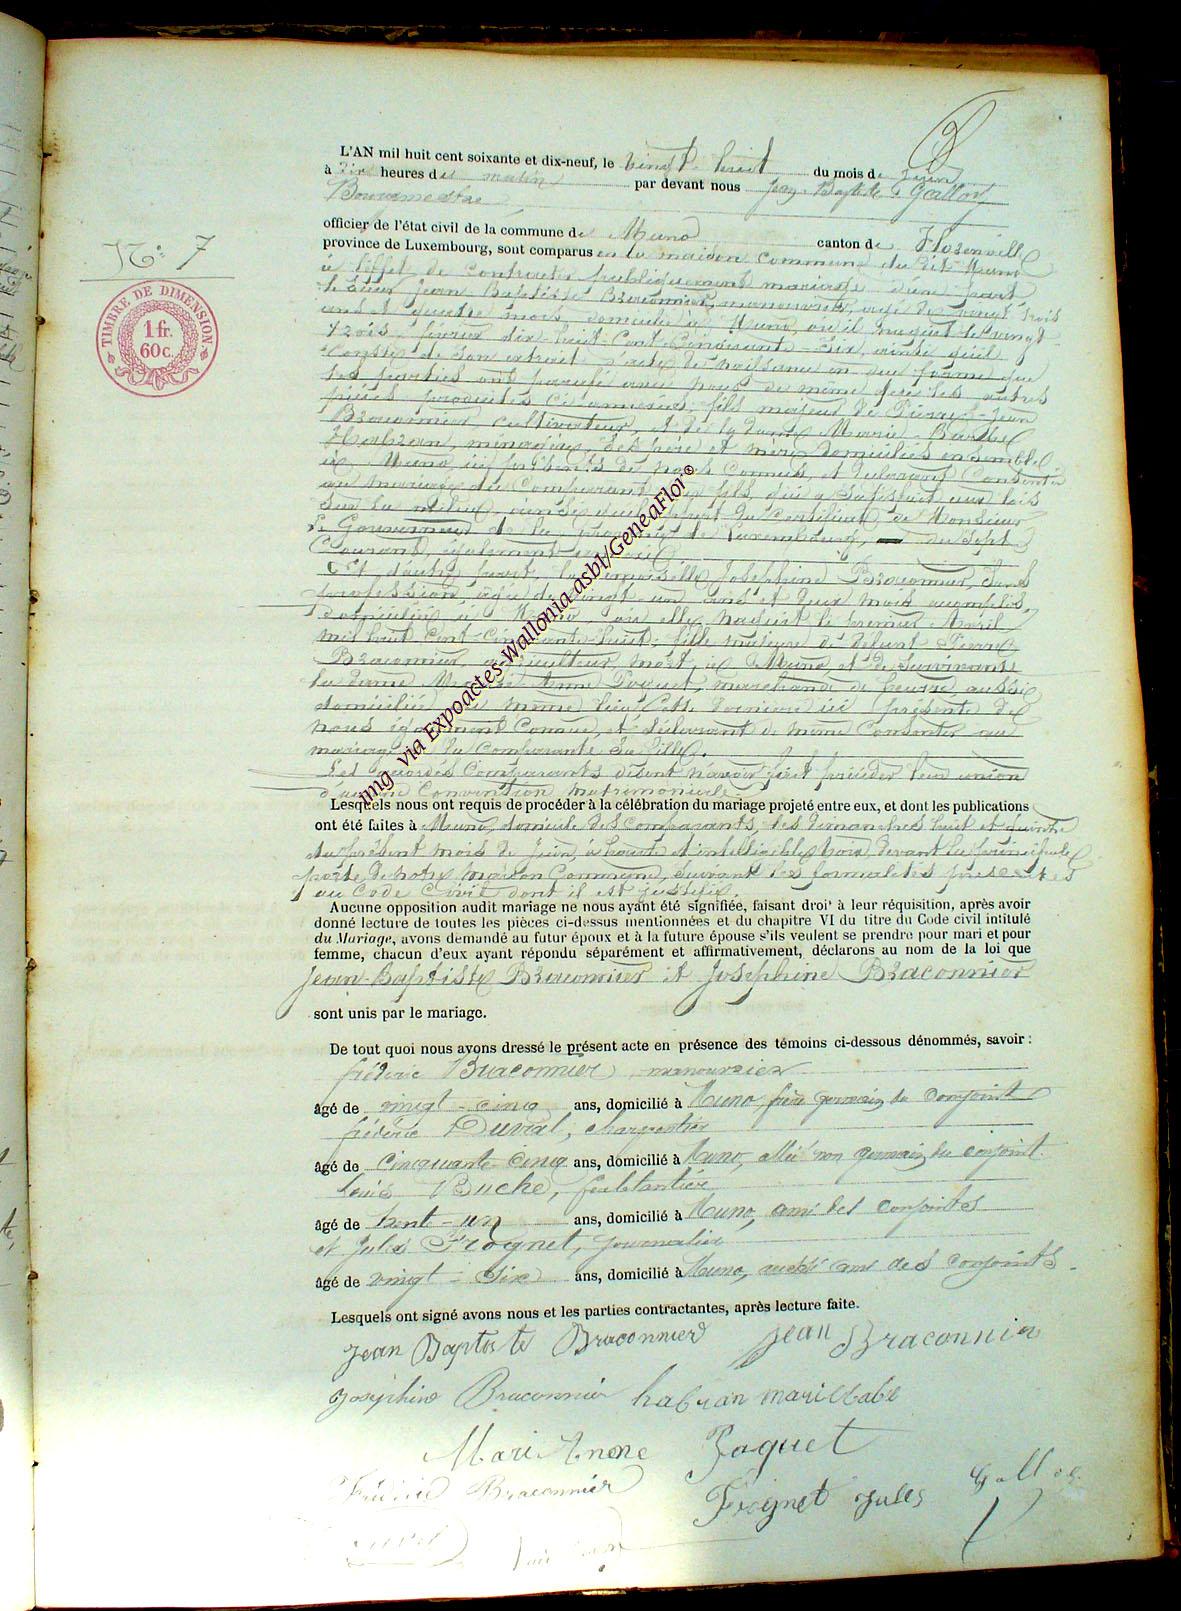 L'AN mil huit cent soixante et dix-neuf, le vingt-huit du mois de juin
à dix heures du matin par devant nous Jean-Baptiste Galloy
Bourgmestre
officier de l'état civil de la commune de Muno canton de Florenville
province de Luxembourg, sont comparus en la maison commune du dit Muno
N° 7
TIMBRE DE DIMENSION
1 fr.
60c.
à l'effet de contracter publiquement mariage d'une part
le sieur Jean-Baptiste Braconnier, manouvrier, agé de vingt trois
ans et quatre mois domicilié à Muno, où il naquit le vingt
trois février dix-huit-Cent-Cinquante-Six, ainsi qu'il
conste de son extrait d'acte de naissance en due forme que
les parties ont paraphé avec nous de même que les autres
pièces produites ci annexées, fils majeur de Pierre-Jean
Braconnier, cultivateur, et de la dame Marie-Barbe
Habran, ménagère, ses père et mère domiciliés ensemble
à Muno, ici présents de nous connus, et déclarant Consentir
au mariage du Comparant leur fils, qui a satisfait aux lois
sur la milice, ainsi qu'il du Certificat de Monsieur
le Gouverneur de la province de Luxembourg, du sept
Courant, également
Et d'autre part, la demoiselle Joséphine Braconnier, Sans
profession, agée de vingt-un ans et deux mois accomplis,
domiciliée à Muno où elle naquit le premier Avril
mil huit Cent-Cinquante-huit, fille majeure de défunt Pierre
Braconnier, agriculteur, mort à Muno, et de survivante
la dame Marie Anne Poquet, marchande de beurre, aussi
domiciliée au même lieu, Cette dernière ici présente de
nous également Connue, et déclarant de même Consentir au
mariage de la Comparante sa fille.
Les accordés Comparants disent n'avoir fait précéder leur union
d'aucune Convention matrimoniale.
Lesquels nous ont requis de procéder à la célébration du mariage projeté entre eux, et dont les publications
ont été faites à Muno, domicile des comparants, les dimanches huit et quinze
du présent mois de juin, à haute et intelligible voix, devant la principale
porte de notre maison Commune, suivant les formalités prescrites
au Code Civil dont il est justifié.
Aucune opposition audit mariage ne nous ayant été signifiée, faisant droi' à leur réquisition, après avoir
donné lecture de toutes les pièces ci-dessus mentionnées et du chapitre VI du titre du Code civil intitulé
du Mariage, avons demandé au futur époux et à la future épouse s'ils veulent se prendre pour mari et pour
femme, chacun d'eux ayant répondu séparément et affirmativement, déclarons au nom de la loi que
Jean-Baptiste Braconnier et Joséphine Braconnier
sont unis par le mariage.
De tout quoi nous avons dressé le présent acte en présence des témoins ci-dessous dénommés, savoir :
frédéric Braconnier, manouvrier
âgé de vingt-cinq ans, domicilié à Muno, frère germain du conjoint
frédéric Duvral, charpentier
âgé de Cinquante-Cinq ans, domicilié à Muno, allié non germain du conjoint.
Louis Buche, ferblantier
âgé de trente-un ans, domicilié à Muno, ami des conjoints
et Jules Froignet, journalier
âgé de vingt-six ans, domicilié à Muno, aussi ami des conjoints.
Lesquels ont signé avons nous et les parties contractantes, après lecture faite.
Jean Baptiste Braconnier Jean Braconnier
Joséphine Braconnier habran marie babe
Mari Anne Poquet
Frédéric Braconnier Froignet Jules Galloy
img via Expoactes-Wallonia-asbl/GeneaFlor©